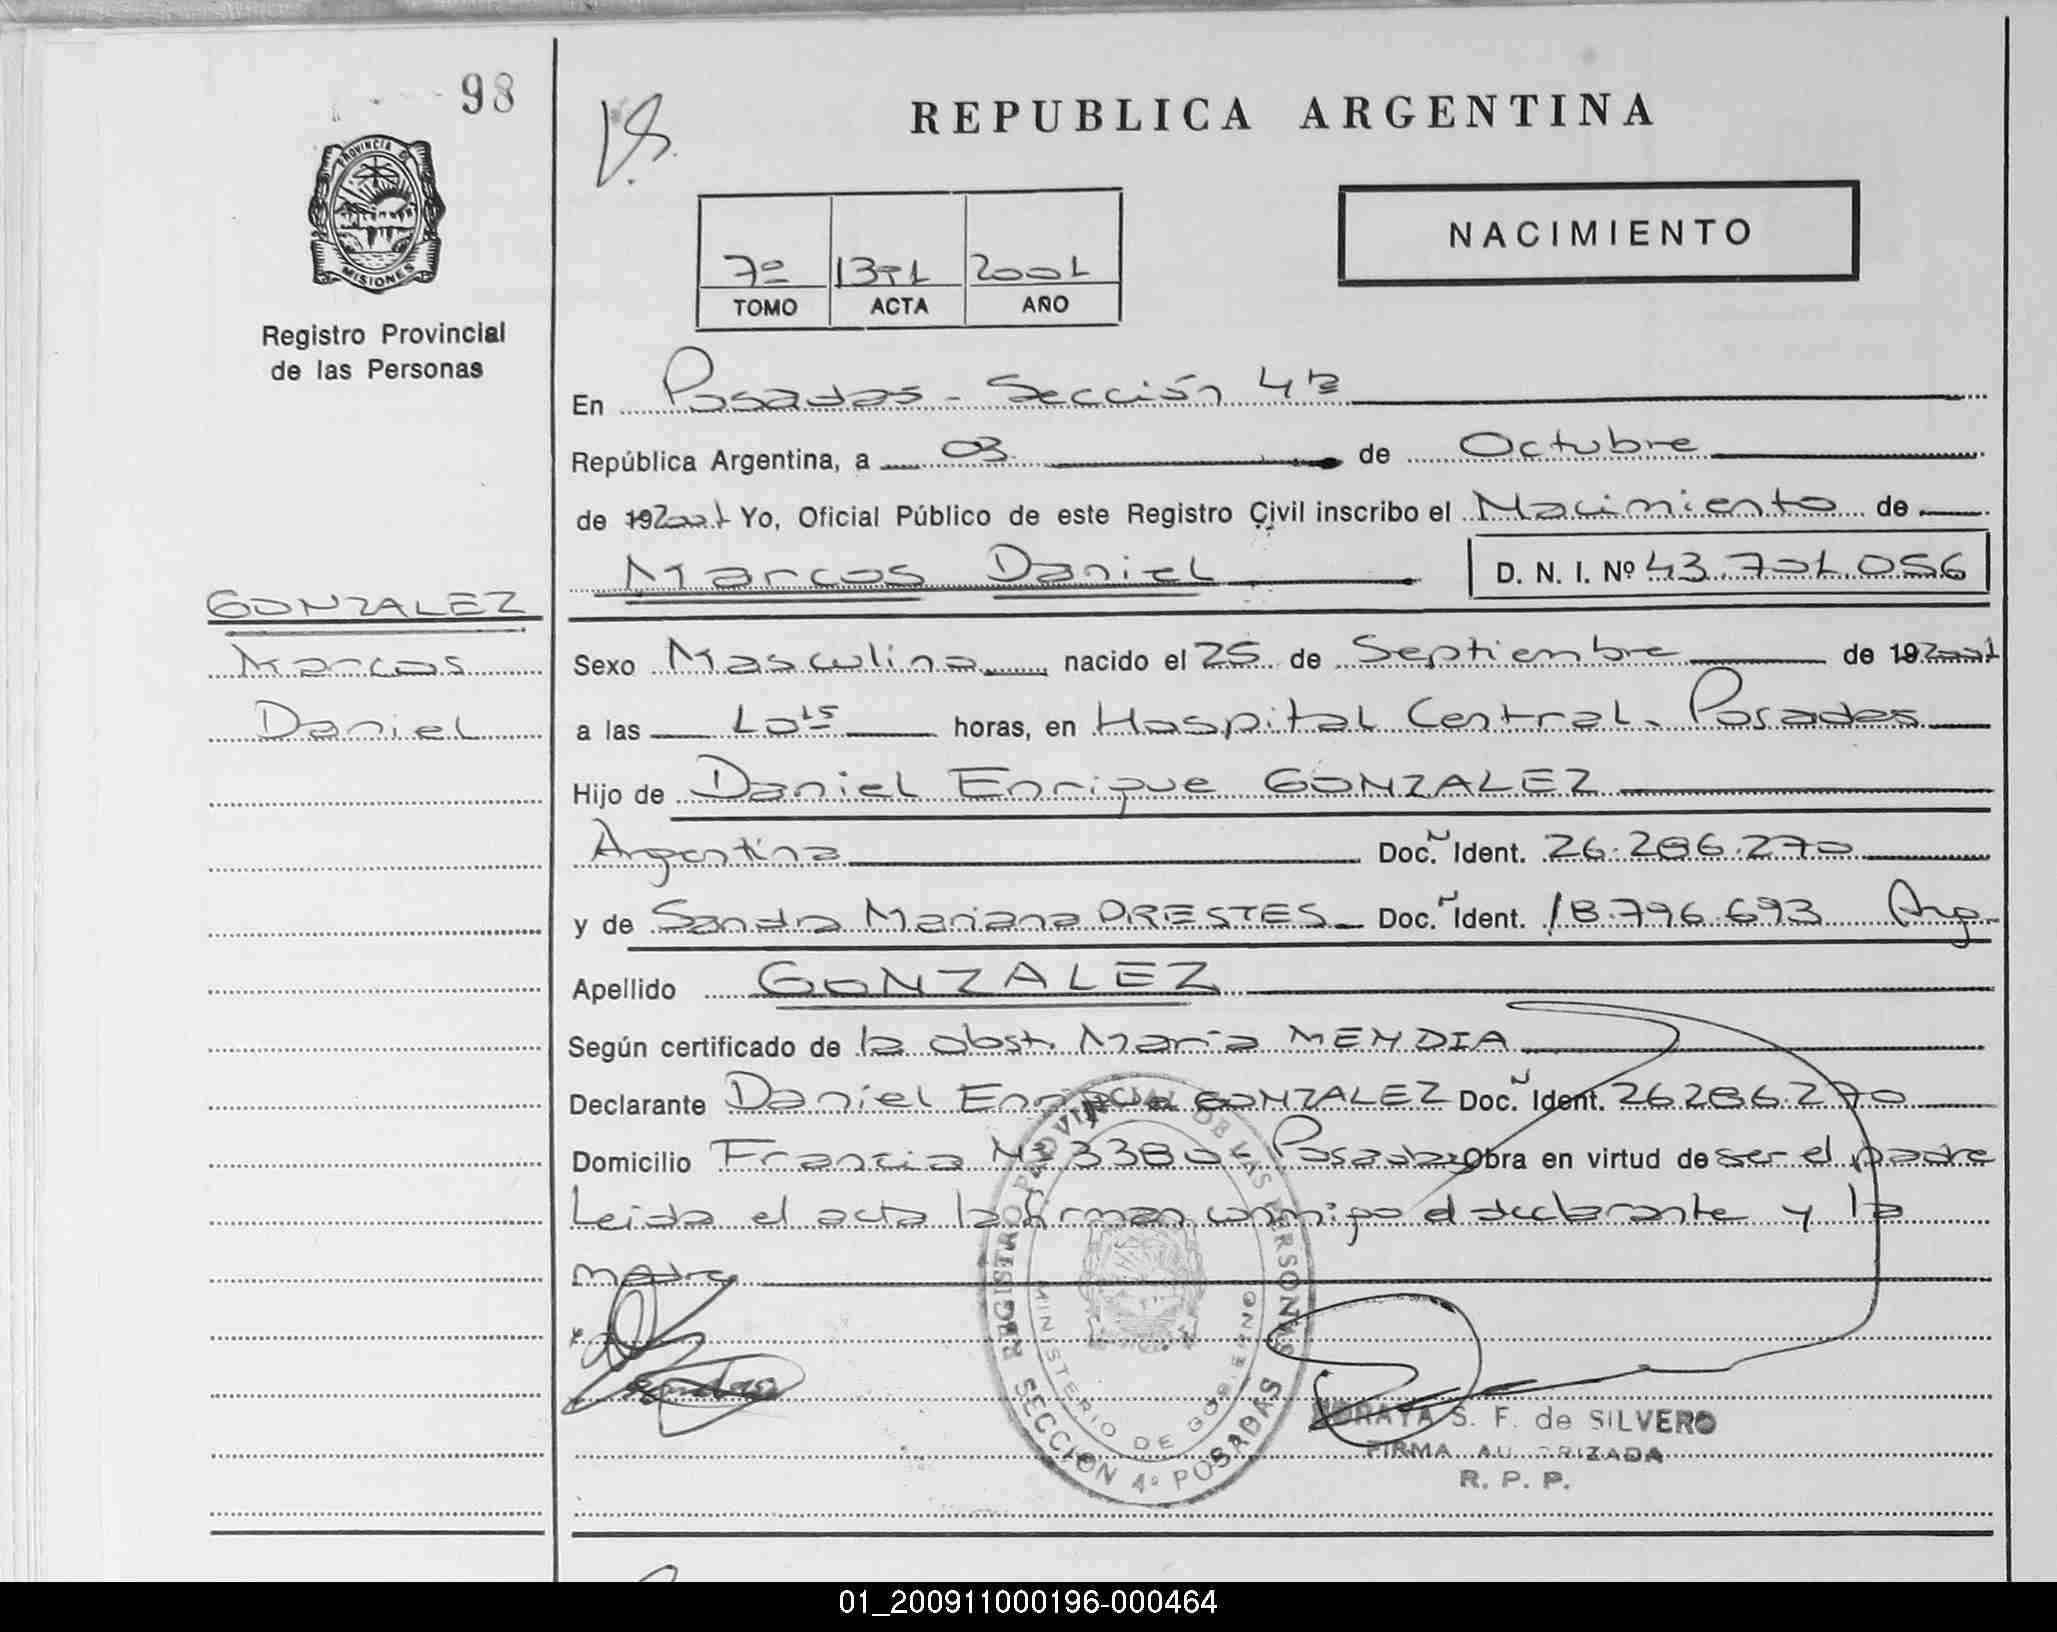 98
REPUBLICA ARGENTINA
NACIMIENTO
PROVINCIA DE
MISIONES
Registro Provincial
de las Personas
7º 1391 2001
TOMO ACTA AÑO
En Posadas - Sección 4ta
República Argentina, a 03 de Octubre
de 19 2001 Yo, Oficial Público de este Registro Civil inscribo el Nacimiento de
Marcos Daniel D. N. I. Nº 43.701.056
GONZALEZ
Marcos
Daniel
Sexo Masculino nacido el 25 de Septiembre de 19 2001
a las 10 15 horas, en Hospital Central. Posadas
Hijo de Daniel Enrique GONZALEZ
Argentina Doc. N Ident. 26.286.270
y de Sandra Mariana PRESTES Doc. N Ident. 18.796.693 Arg.
Apellido GONZALEZ
Según certificado de la obst. María MENDIA
Declarante Daniel Enrique GONZALEZ Doc. N Ident. 26.286.270
Domicilio Francia Nº 3380 Posadas Obra en virtud de ser el padre
Leida el acta la firman conmigo el declarante y la
madre
REGISTRO PROVINCIAL DE LAS PERSONAS
MINISTERIO DE GOBIERNO
SECCION 4ª POSADAS
S. F. de SILVERO
FIRMA AUTORIZADA
R. P. P.
01_200911000196-000464